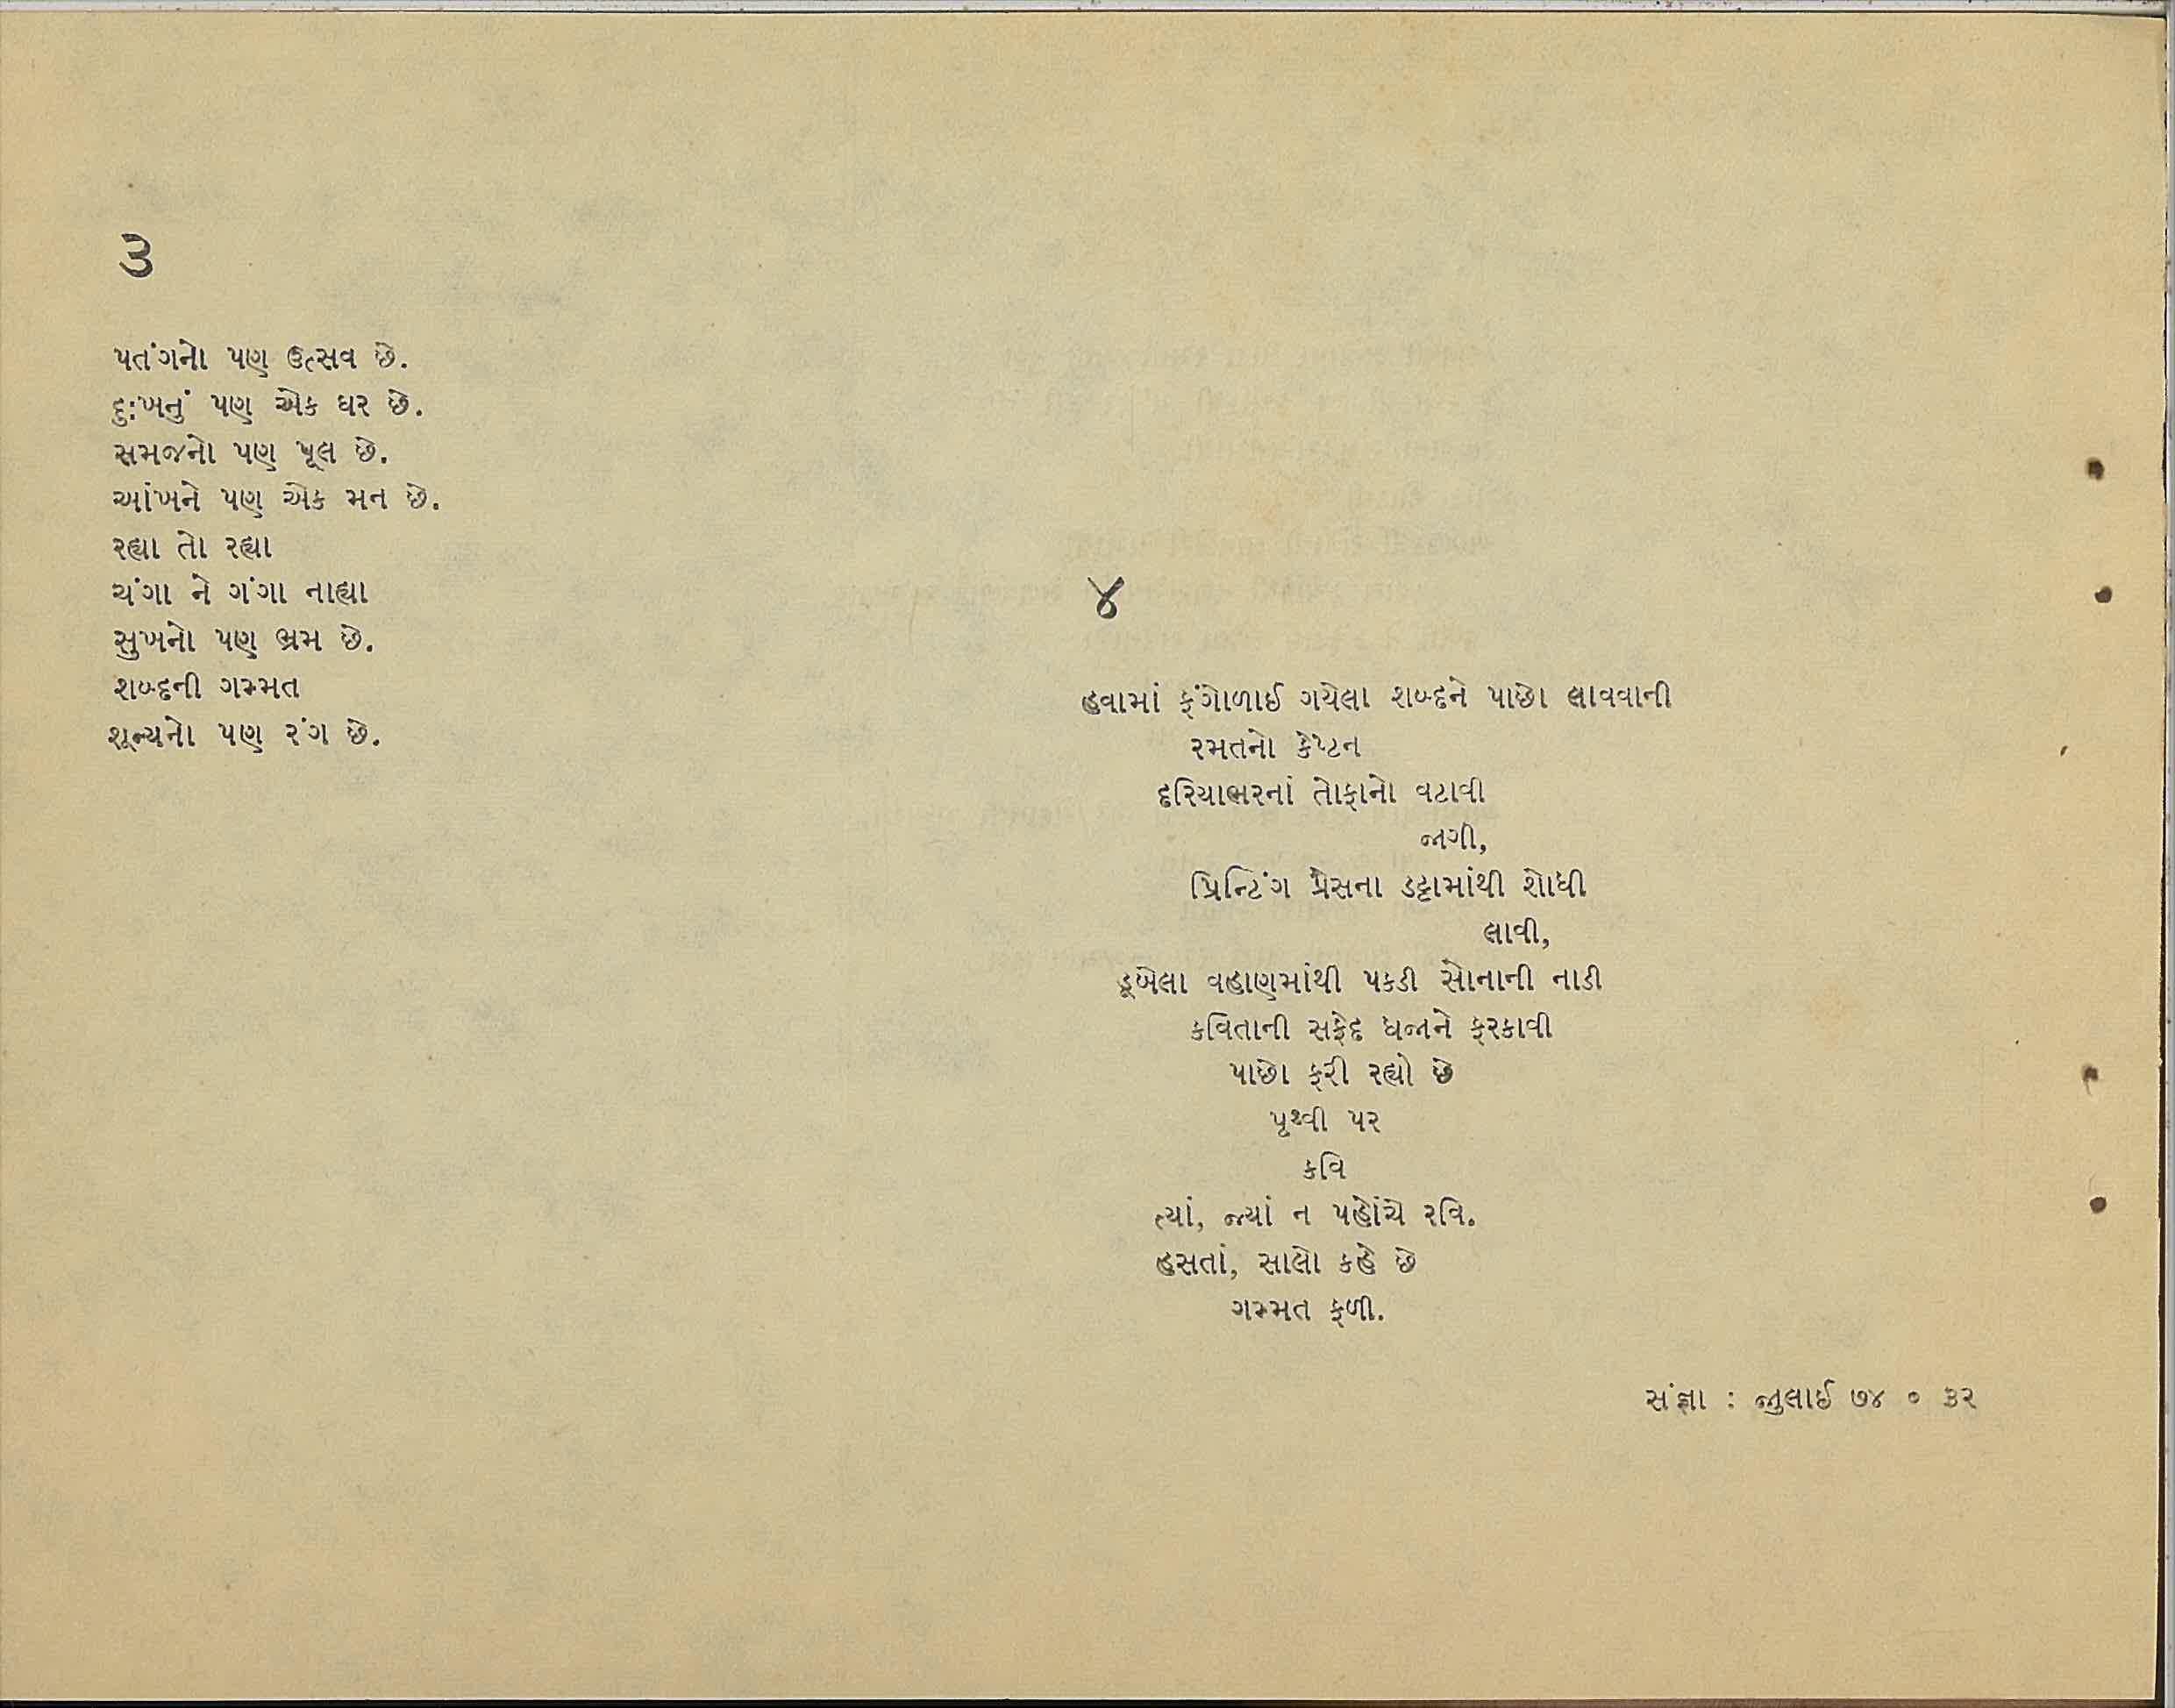 ૩
પતંગનો પણ ઉત્સવ છે.
દુઃખનું પણ એક ઘર છે.
સમજનો પણ પૂલ છે.
આંખને પણ એક મન છે.
રહ્યા તો રહ્યા
ચંગા ને ગંગા નાહ્યા
સુખનો પણ ભ્રમ છે.
શબ્દની ગમ્મત
શૂન્યનો પણ રંગ છે.
૪
હવામાં ફંગોળાઈ ગયેલા શબ્દને પાછો લાવવાની
રમતનો કેપ્ટન
દરિયાભરનાં તોફાનો વટાવી
જાગી,
પ્રિન્ટિંગ પ્રેસના ડટ્ટામાંથી શોધી
લાવી,
ડૂબેલા વહાણમાંથી પકડી સોનાની નાડી
કવિતાની સફેદ ધજાને ફરકાવી
પાછો ફરી રહ્યો છે
પૃથ્વી પર
કવિ
ત્યાં, જ્યાં ન પહોંચે રવિ.
હસતાં, સાલો કહે છે
ગમ્મત ફળી.
સંજ્ઞા : જુલાઈ ૭૪ ૦ ૩૨